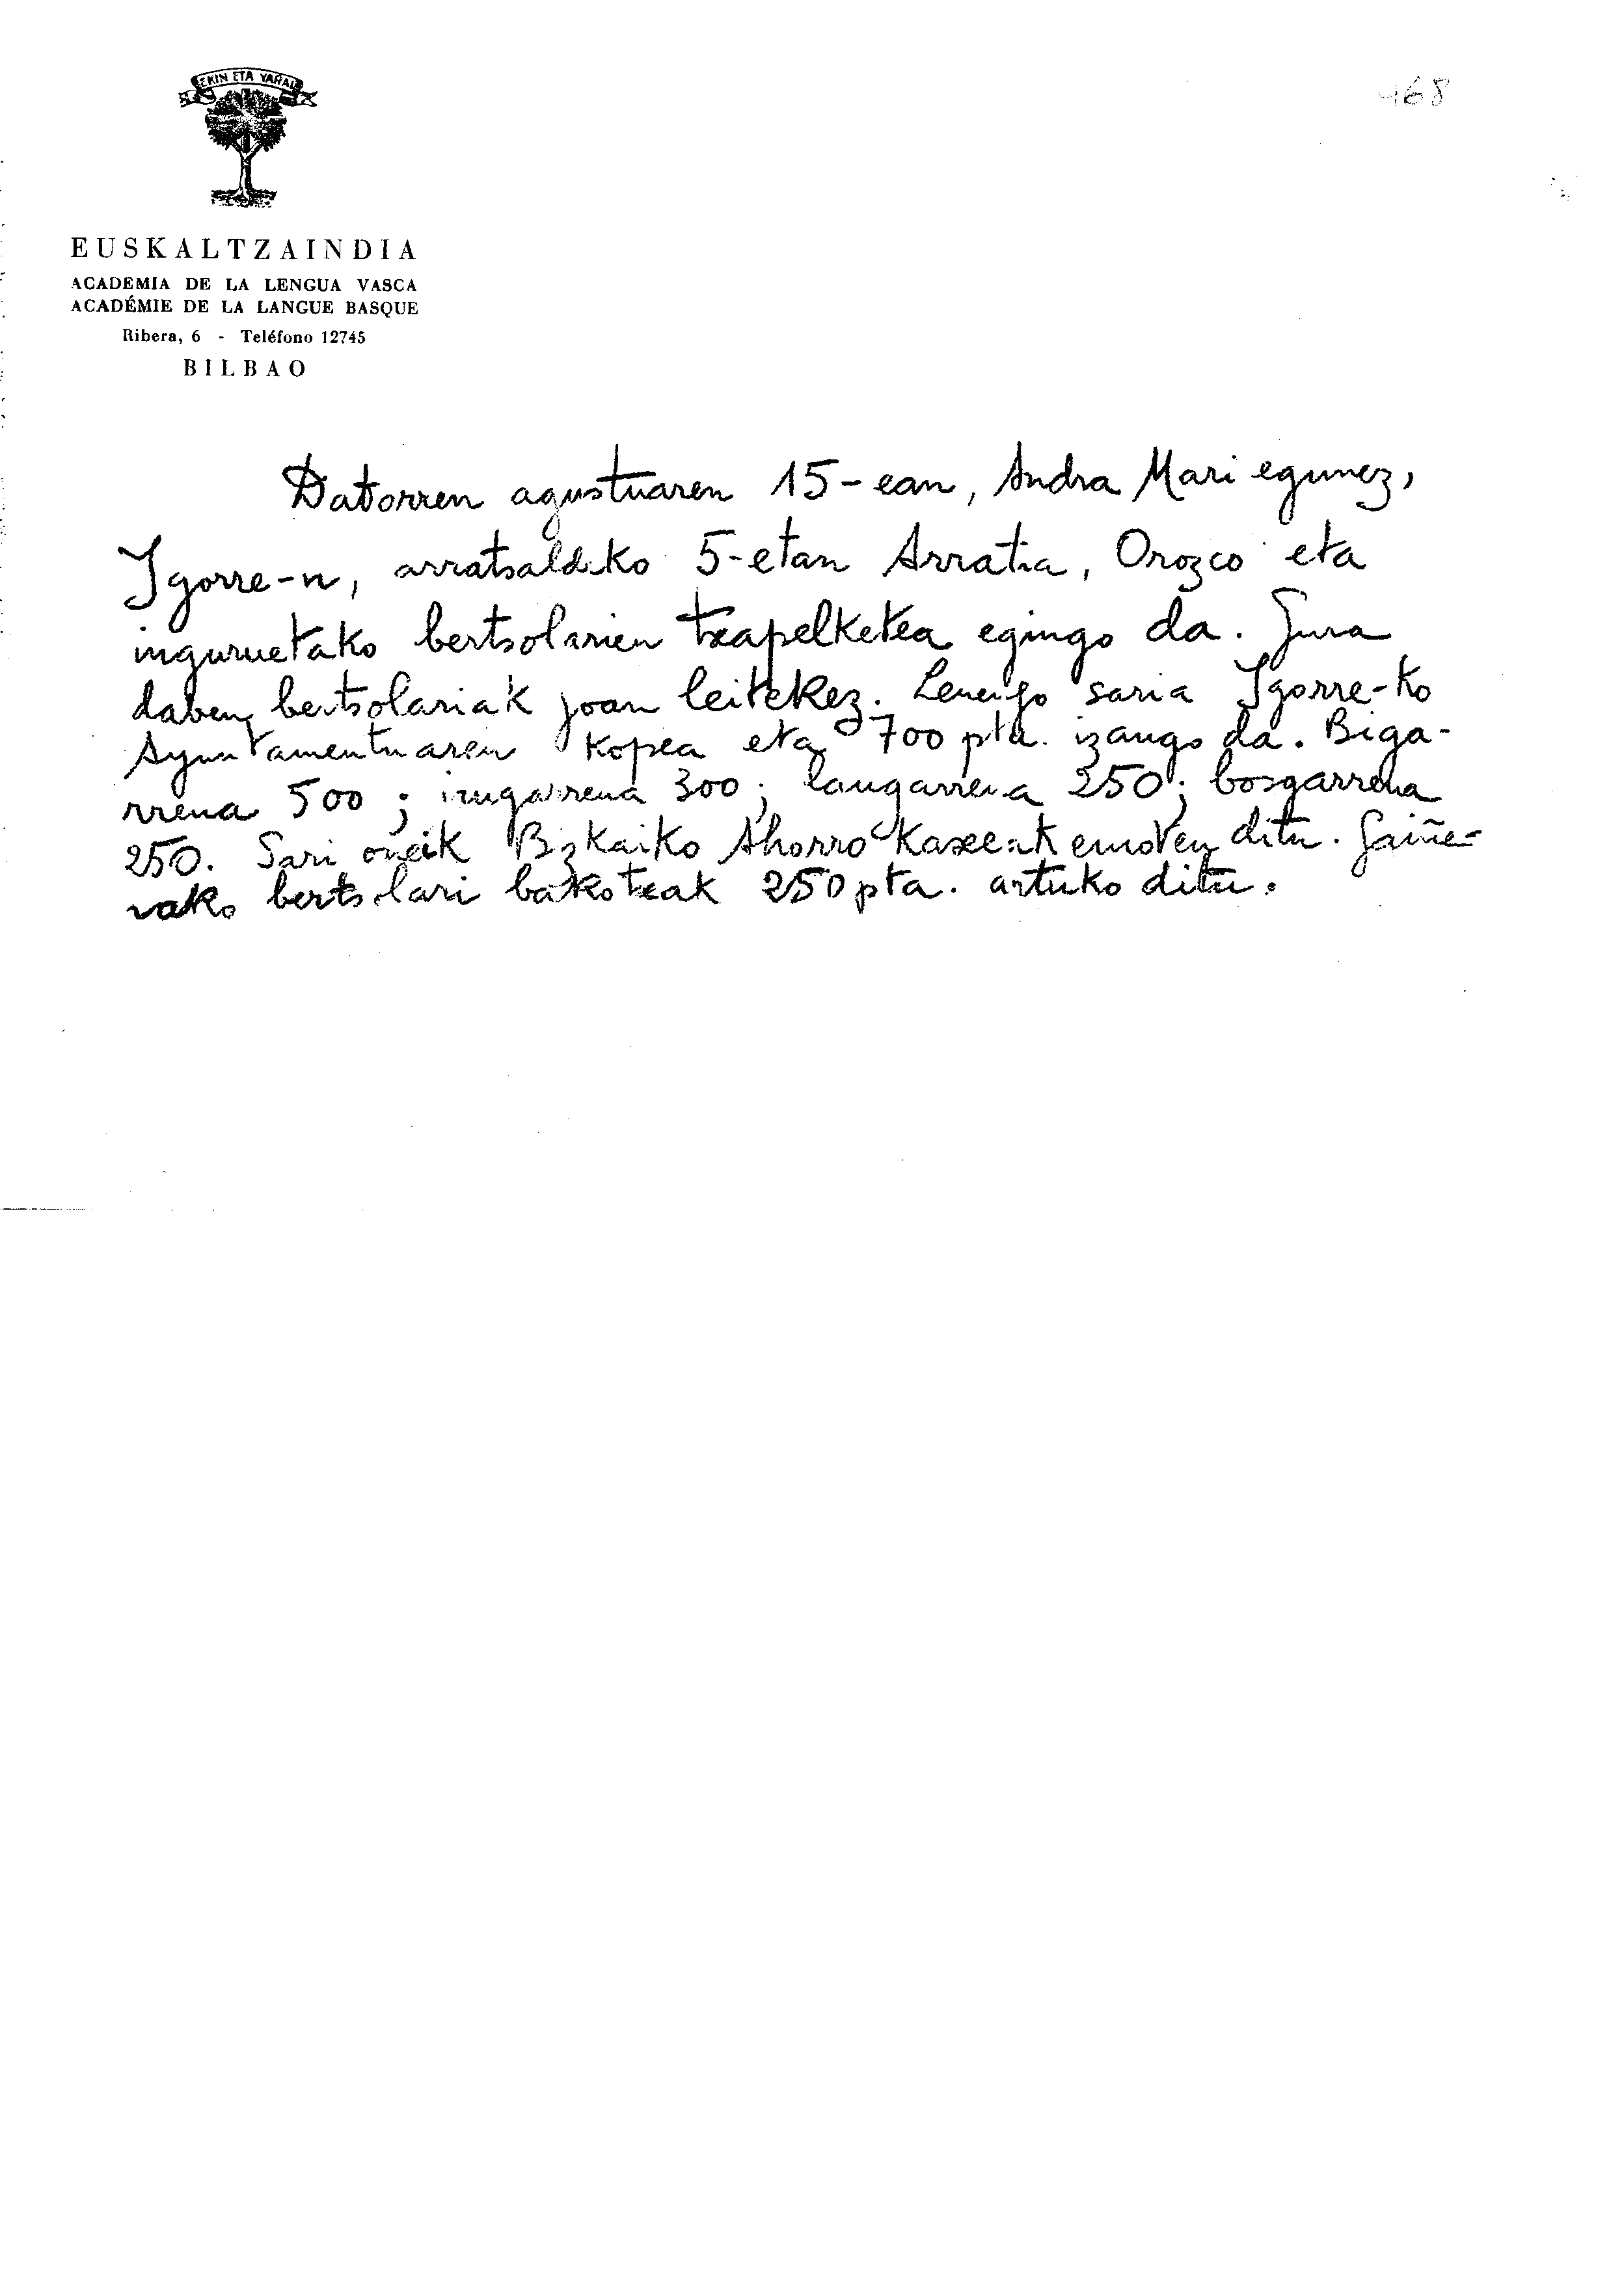 EKIN ETA YARAI
468
EUSKALTZAINDIA
ACADEMIA DE LA LENGUA VASCA
ACADÉMIE DE LA LANGUE BASQUE
Ribera, 6 - Teléfono 12745
BILBAO
Datorren agustuaren 15-ean, Andra Mari egunez,
Igorre-n, arratsaldeko 5-etan Arratia, Orozco eta
inguruetako bertsolarien txapelketea egingo da. Gura
daben bertsolariak joan leitekez. Lenengo saria Igorre-ko
Ayuntamentuaren kopea eta 700 pta. izango da. Biga-
rrena 500; irugarrena 300; laugarrena 250; bosgarrena
250. Sari oneik Bizkaiko Ahorro Kaxeak emoten ditu. Gaiñe-
rako bertsolari bakotxak 250 pta. artuko ditu.